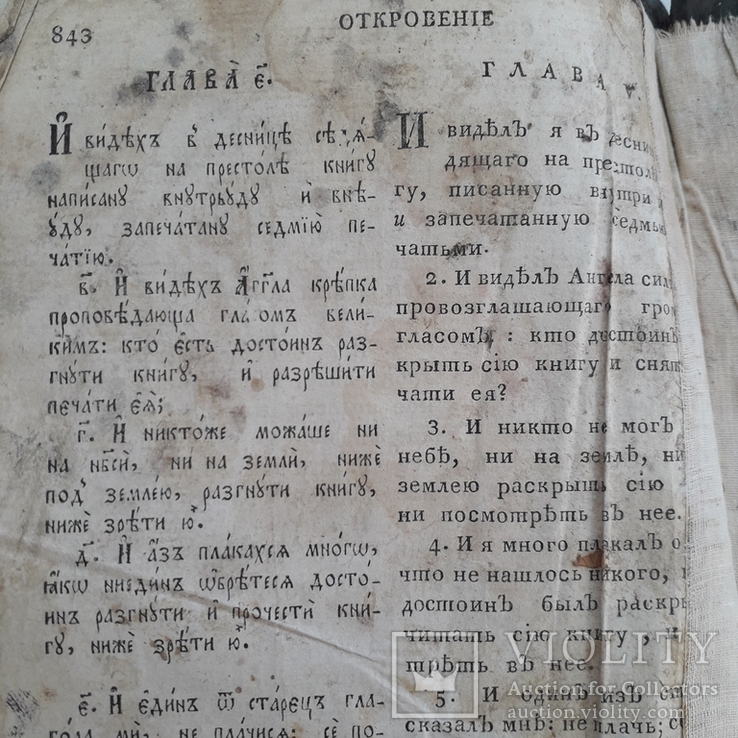 843
ОТКРОВЕНІЕ
ГЛАВА̀ Є҃.
И҆ ви́дѣхъ в̾ деснице́ сѣдѧ́-
щагѡ на престо́лѣ кни́гꙋ
напи́санꙋ внꙋтрьꙋ́дꙋ и҆ внѣ-
ꙋ́дꙋ, запеча́танꙋ седмі́ю пе-
ча́тїю.
в҃. И҆ ви́дѣхъ А҆́гг҃ла крѣ́пка
проповѣ́дающа гла́сомъ вели́-
кимъ: кто́ є҆́сть досто́инъ раз-
гнꙋ́ти кни́гꙋ, и҆ разрѣши́ти
печа́ти є҆ѧ̀;
г҃. И҆ никто́же можа́ше ни
на нб҃сѝ, ни на землѝ, нижѐ
под̾ земле́ю, разгнꙋ́ти кни́гꙋ,
нижѐ зрѣ́ти ю҆̀.
д҃. И҆ а҆́зъ пла́кахсѧ мно́гѡ,
ꙗ҆́кѡ ниєди́нъ ѡ҆брѣ́тесѧ досто́-
инъ разгнꙋ́ти и҆ прочестѝ кни́-
гꙋ, нижѐ зрѣ́ти ю҆̀.
є҃. И҆ є҆ди́нъ ѿ ста́рєцъ гла-
го́ла мѝ, не пла́чисѧ: сѐ по-
ГЛАВА
И видѣлъ я въ десни
дящаго на престолѣ
гу, писанную внутри
и запечатанную седмью
чатьми.
2. И видѣлъ Ангела сил
провозглашающаго гро
гласомъ: кто достоинъ
крыть сію книгу и снят
чати ея?
3. И никто не могъ
небѣ, ни на землѣ, ни
землею раскрыть сію
ни посмотрѣть въ нее.
4. И я много плакалъ о
что не нашлось никого,
достоинъ былъ раскры
читать сію книгу, ни
трѣть въ нее.
5. И одинъ изъ ст
сказалъ мнѣ: не плачь; с
VIOLITY
Auction for Collectors
auction.violity.com